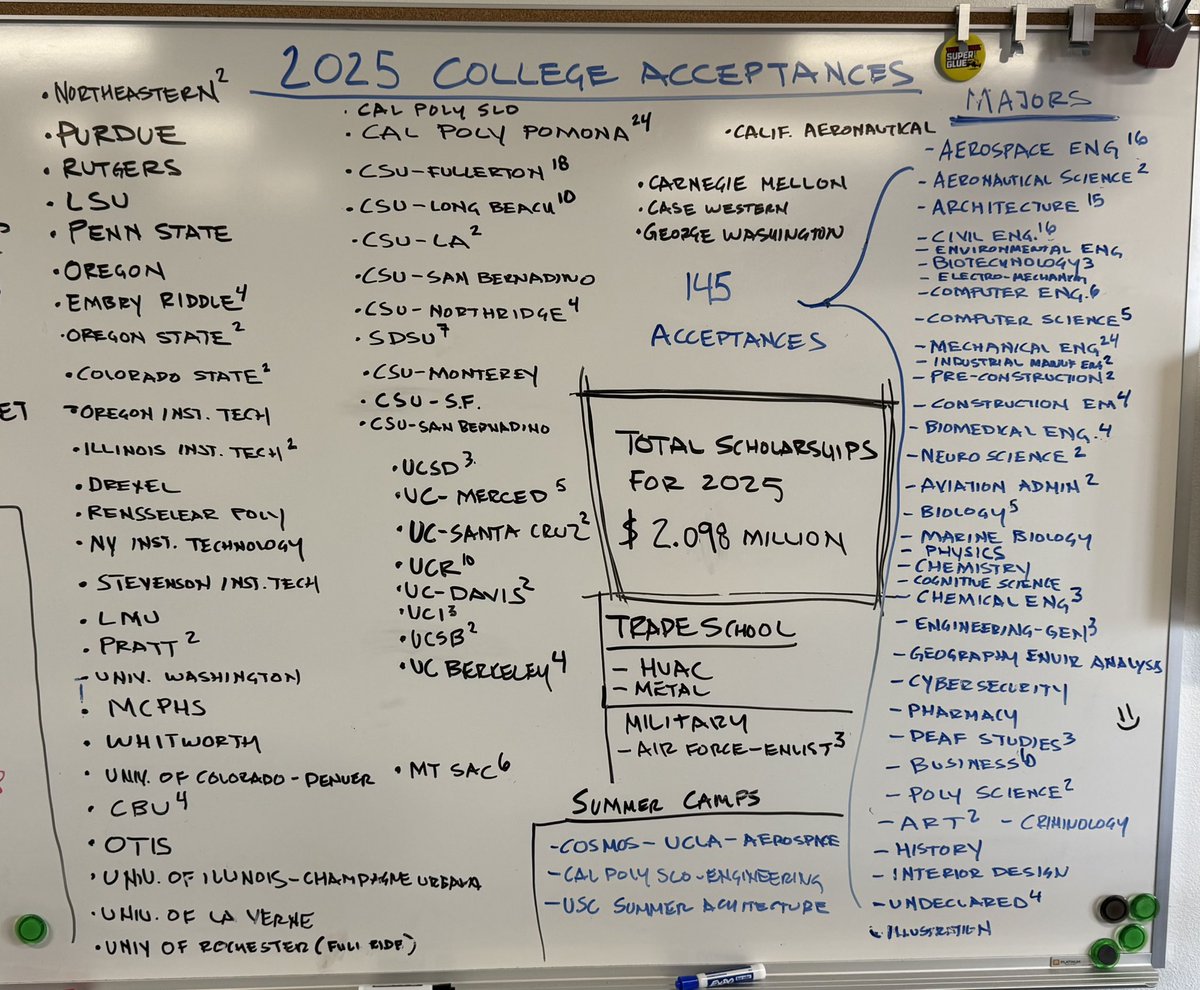 2025 COLLEGE ACCEPTANCES
• NORTHEASTERN²
• PURDUE
• RUTGERS
• LSU
• PENN STATE
• OREGON
• EMBRY RIDDLE⁴
• OREGON STATE²
• COLORADO STATE²
OREGON INST. TECH
• ILLINOIS INST. TECH²
• DREXEL
• RENSSELEAR POLY
• NY INST. TECHNOLOGY
• STEVENSON INST. TECH
• LMU
• PRATT²
- UNIV. WASHINGTON
• MCPHS
• WHITWORTH
• UNIV. OF COLORADO - DENVER
• CBU⁴
• OTIS
• UNIV. OF ILLINOIS - CHAMPAGNE URBANA
• UNIV. OF LA VERNE
• UNIV OF ROCHESTER (FULL RIDE)
• CAL POLY SLO
• CAL POLY POMONA²⁴
• CSU-FULLERTON¹⁸
• CSU-LONG BEACH¹⁰
• CSU-LA²
• CSU-SAN BERNADINO
• CSU-NORTHRIDGE⁴
• SDSU⁷
• CSU-MONTEREY
• CSU-S.F.
• CSU-SAN BERNADINO
• UCSD³
• UC-MERCED⁵
• UC-SANTA CRUZ²
• UCR¹⁰
• UC-DAVIS²
• UCI³
• UCSB²
• UC BERKELEY⁴
• MT SAC⁶
• CALIF. AERONAUTICAL
• CARNEGIE MELLON
• CASE WESTERN
• GEORGE WASHINGTON
145
ACCEPTANCES
TOTAL SCHOLARSHIPS
FOR 2025
$ 2.098 MILLION
TRADE SCHOOL
- HVAC
- METAL
MILITARY
- AIR FORCE-ENLIST³
SUMMER CAMPS
- COSMOS - UCLA - AEROSPACE
- CAL POLY SLO-ENGINEERING
- USC SUMMER ACHITECTURE
SUPER GLUE
MAJORS
- AEROSPACE ENG¹⁶
- AERONAUTICAL SCIENCE²
- ARCHITECTURE¹⁵
- CIVIL ENG.¹⁶
- ENVIRONMENTAL ENG
- BIOTECYNOLOGY³
- ELECTRO-MECHANICAL
- COMPUTER ENG.⁶
- COMPUTER SCIENCE⁵
- MECHANICAL ENG²⁴
- INDUSTRIAL MANUF ENG²
- PRE-CONSTRUCTION²
- CONSTRUCTION EM⁴
- BIOMEDICAL ENG.⁴
- NEURO SCIENCE²
- AVIATION ADMIN²
- BIOLOGY⁵
- MARINE BIOLOGY
- PHYSICS
- CHEMISTRY
- COGNITIVE SCIENCE
- CHEMICAL ENG³
- ENGINEERING-GEN³
- GEOGRAPHY ENVIR ANALYSIS
- CYBERSECURITY
- PHARMACY
- DEAF STUDIES³
- BUSINESS⁶
- POLY SCIENCE²
- ART² - CRIMINOLOGY
- HISTORY
- INTERIOR DESIGN
- UNDECLARED⁴
ILLUSTRATION
ET
EXPO
PLATINUM